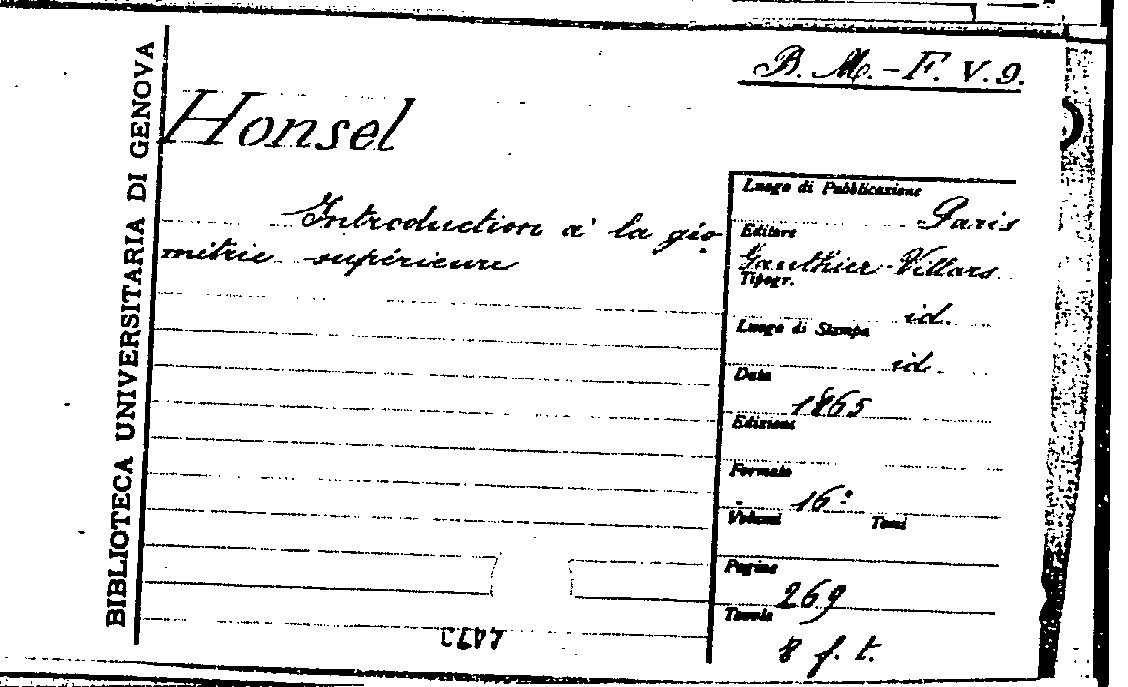 B. M. - F. V. 9.
BIBLIOTECA UNIVERSITARIA DI GENOVA
Honsel
Introduction à la géo
métrie supérieure
Luogo di Pubblicazione
Paris
Editore
Gauthier-Villars
Tipogr.
id.
Luogo di Stampa
id.
Data
1865
Edizione
Formato
16º
Volumi
Tomi
Pagine
269
Tavole
8 f. t.